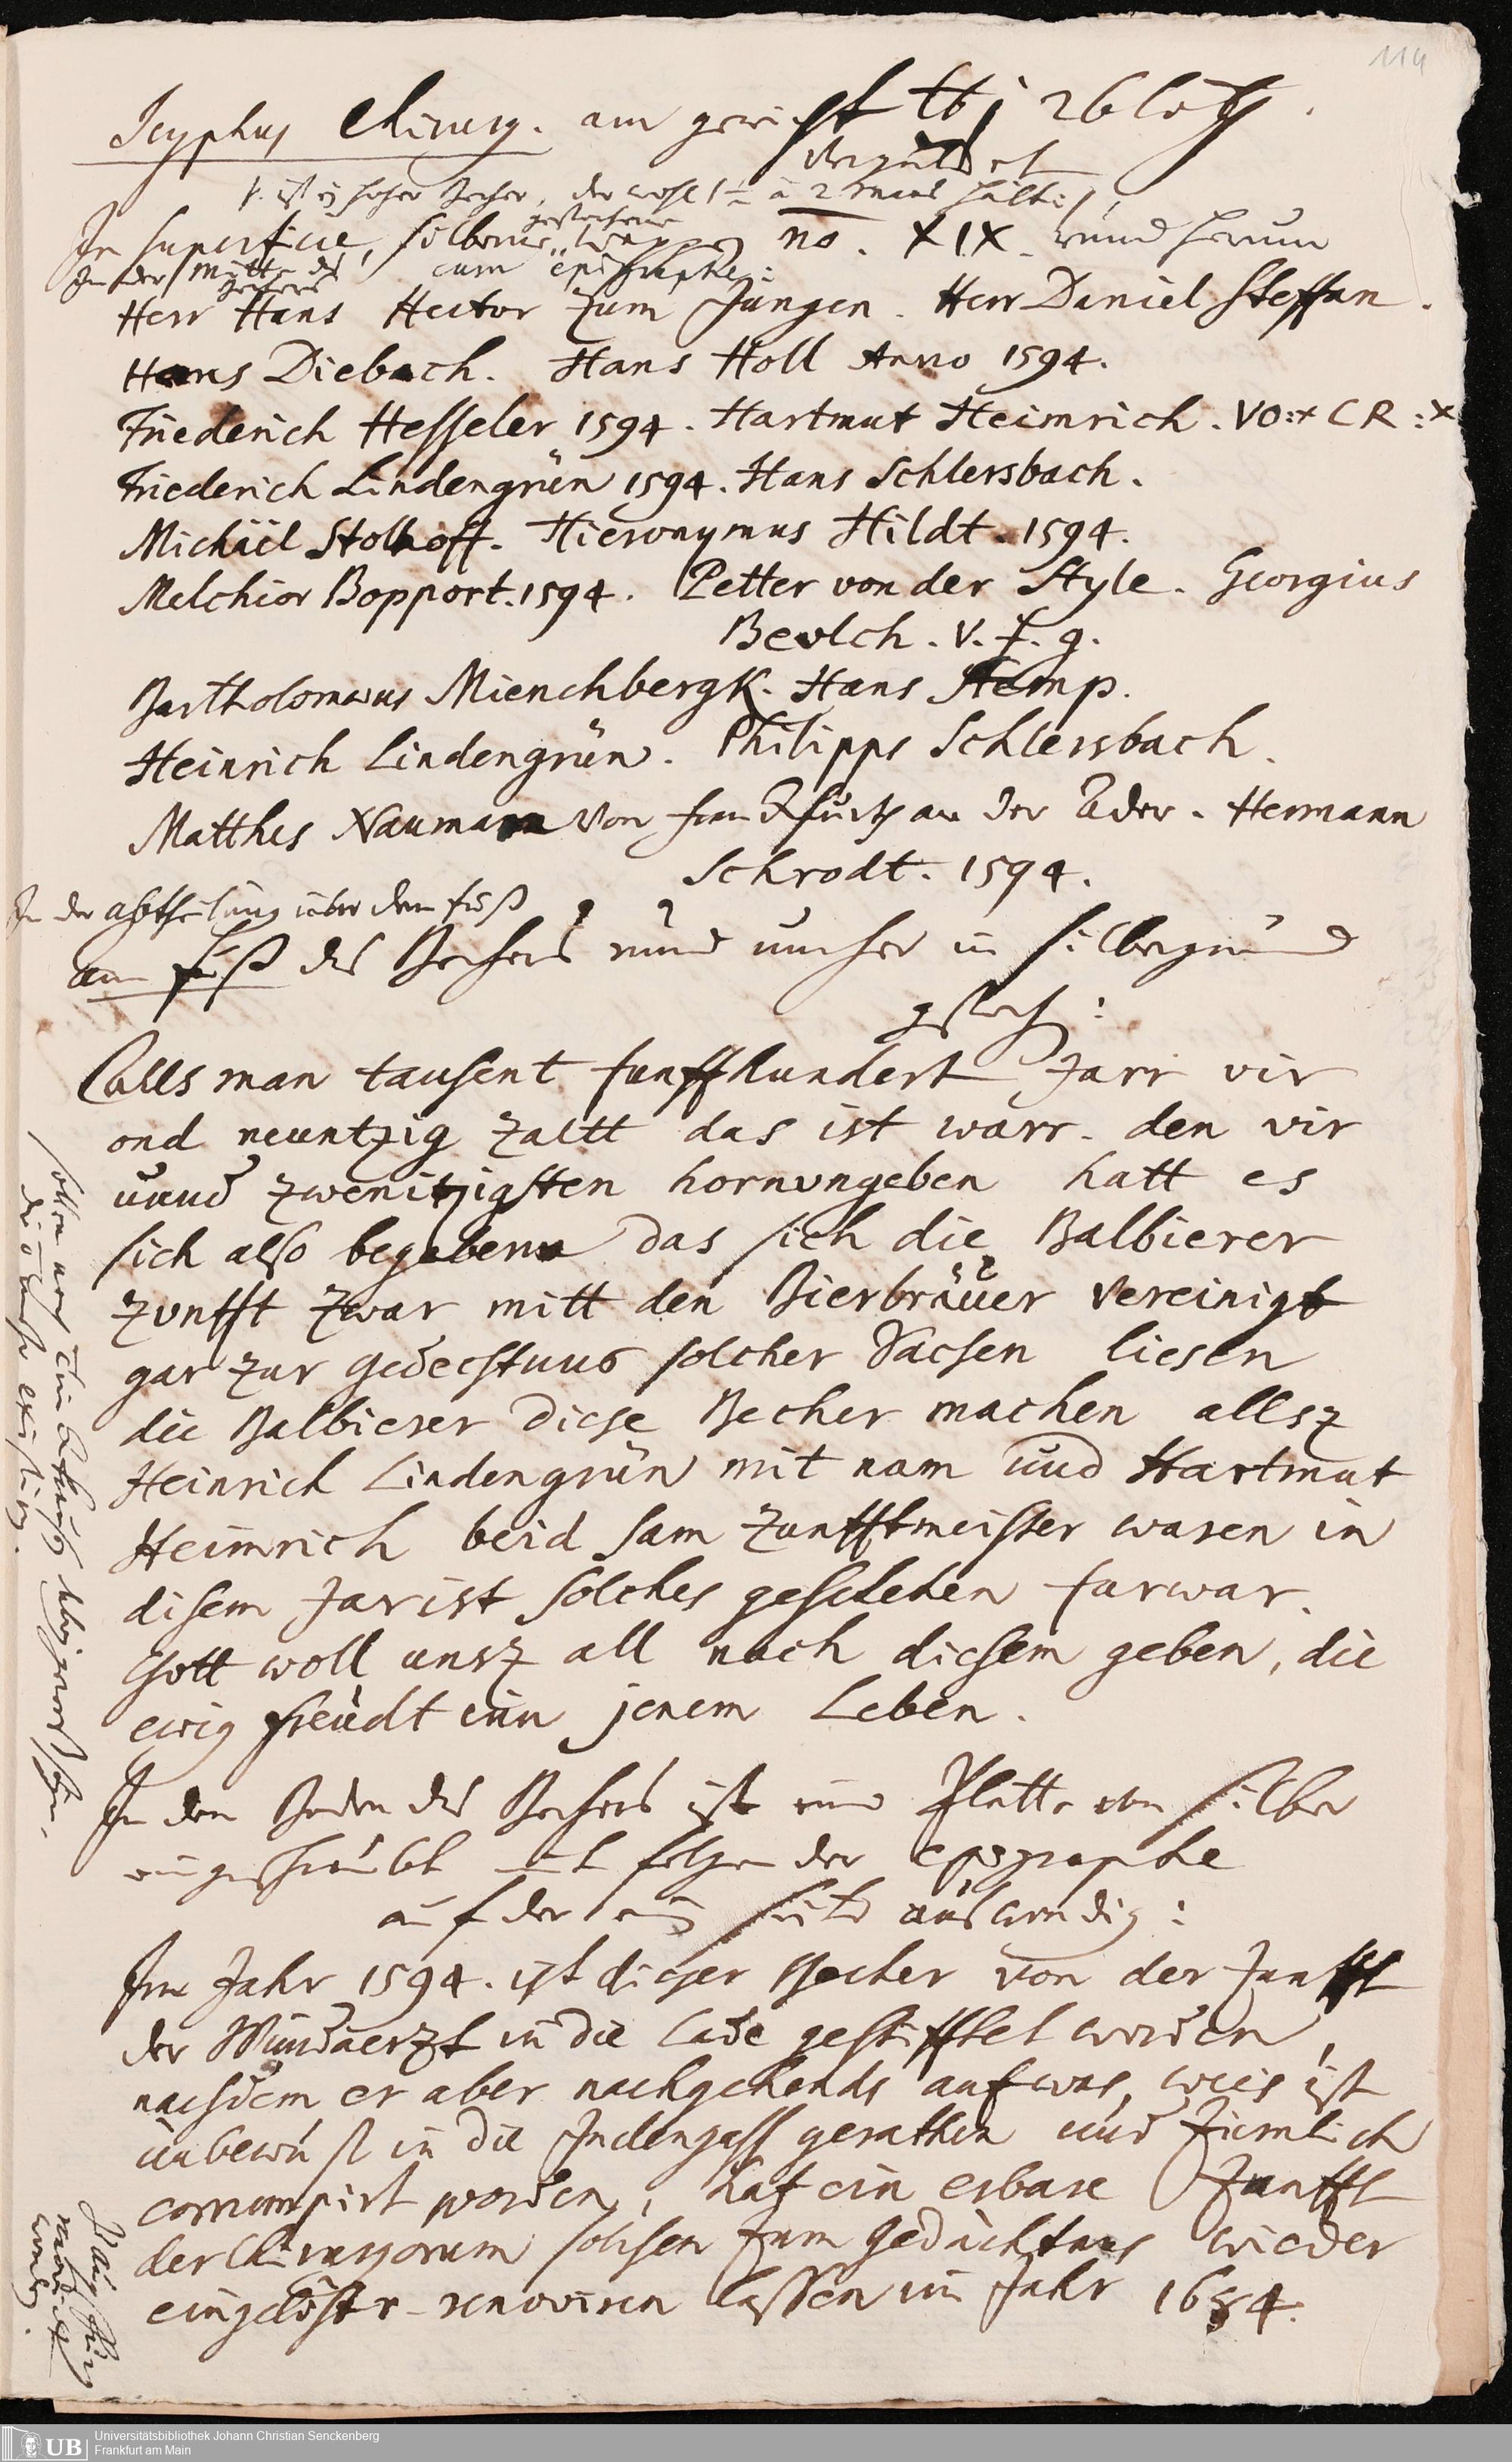 114
Scyphus Chirurg. am gewicht ℔ j 26 loth.
vergüldet
/: ist ein hoher Becher, der wohl 1 ½ à 2 mas hält :/
In superficie, silberne gestochene wappen no. XIX. rund herum
In der Mitte des Bechers cum epigraphe:
Herr Hans Hector zum Jungen. Herr Daniel Steffan.
Hans Diebach. Hans Holl Anno 1594.
Friederich Hesseler 1594. Hartmut Heimrich. VO:+ CR:+
Friederich Lindengrün 1594. Hans Schlersbach.
Michäel Stolhoff. Hieronymus Hildt. 1594.
Melchior Bopport. 1594. Petter von der Style. Georgius
Bevlch. V. f. g.
Bartholomeus Mienchbergk. Hans Kemp.
Heinrich Lindengrün. Philipps Schlersbach.
Matthes Naumann von franckfurth an der Oder. Hermann
Schrodt. 1594.
In der abtheilung über dem fuß
am fuß des Bechers rund umher in silbergrund
gestoch:
Calls man tausent funffhundert Jarr vir
ond neuntzig zaltt das ist warr. den vir
uund zwenitzigsten hornvngeben hatt es
sich also begebenn das sich die Balbierer
zvnfft zwar mitt den Bierbräüer vereinigt
gar zur gedechtnus solcher Sachen liesen
die Balbierer diese Becher machen allsz
Heinrich Lindengrün mit nam und Hartmut
Heimrich beid sam zunfftmeister waren in
disem Jar ist solches geschehen furwar.
Gott woll unsz all nach diesem geben, die
ewig freüdt inn jenem Leben.
In dem Boden des Bechers ist eine Platte von silber
eingeschraubt mit folgender epigraphe
auf der ein seite auswendig:
Im Jahr 1594. ist dieser Becher von der Zunfft
der Wundaerzt in die Lade gestifftet worden,
nachdem er aber nachgehends auf was weis ist
unbewust in die Judengass gerathen und ziemlich
corrumpirt worden, hat ein erbare Zunfft
der Chirurgorum solchen zum Gedächtnus wieder
eingelöst r. renoviren lassen im Jahr 1684.
Universitätsbibliothek Johann Christian Senckenberg
Frankfurt am Main
UB